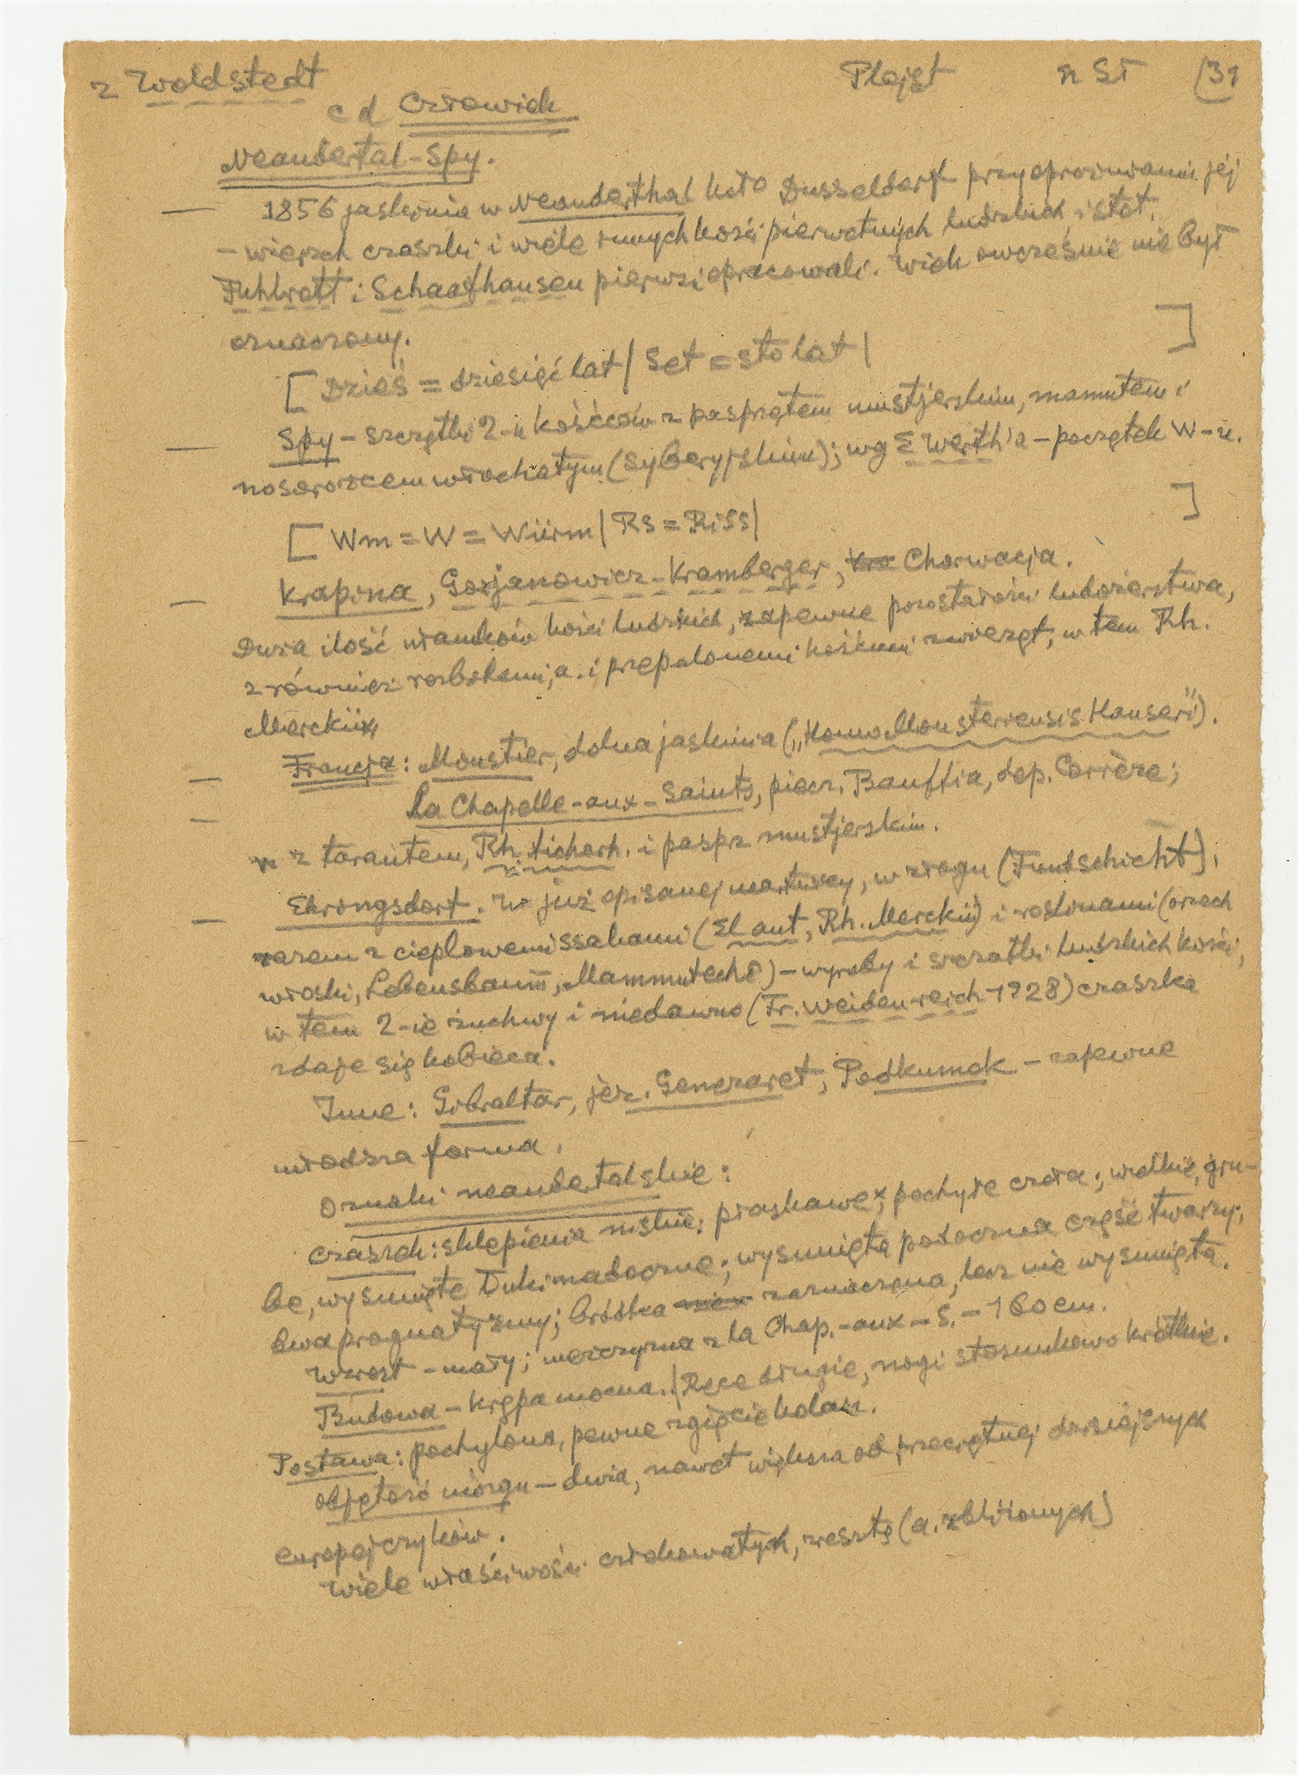 z Woldstedt Plejst n St (31
c d Człowiek
Neandertal-Spy.
1856 jaskinia w Neanderthal koło Dusseldorf przy opróżnianiu jéj
– wierzch czaszki i wiele innych kości pierwotnych ludzkich istot.
Fuhlrott i Schaafhausen pierwsi opracowali. Wiek owcześnie nie był
oznaczony.
[ Dzieś = dziesięć lat / Set = sto lat / ]
Spy – szczątki 2-u kośćców z pasprzętem mustjerskim, mamutem i
nosorożcem włochatym (syberyjskim); wg E Werth'a – początek W-u.
[ Wm = W = Würm / Rs = Riss / ]
Krapina, Gorjanowicz-Kramberger, Chorwacja.
Duża ilość ułamków kości ludzkich, zapewne pozostałości ludożerstwa,
z również rozbitemi, a. i przepalonemi kośćmi zwierząt, w tem Rh.
Merckii,
Francja: Moustier, dolna jaskinia („Homo Mousteriensis Hauseri").
La Chapelle-aux-Saints, piecz. Bouffia, dep. Corrèze;
z tarantem, Rh. tichorh. i paspz mustjerskim.
Ehringsdorf. W już opisanej martwicy, w złogu (Fundschicht),
razem z ciepłowemi ssakami (El. ant, Rh. Merckii) i roślinami (orzech
włoski, Lebensbaum, Mammutech) – wyroby i szczątki ludzkich kości,
w tem 2-ie żuchwy i niedawno (Fr. Weidenreich-1928) czaszka
zdaje się kobieca.
Inne: Gibraltar, jèz. Genezaret, Podkumok – zapewne
młodsza forma.
Oznaki neandertalskie:
Czaszek: sklepienia niskie, płaskawe; pochyłe czoła; wielkie, gru-
be, wysunięte łuki nadoczne; wysunięta podoczna część twarzy;
bwa prognatyzmy; bródka zaznaczona, lecz nie wysunięta.
Wzrost – mały; mężczyzna z la Chap.-aux-S. – 160 cm.
Budowa – krępa mocna. / Ręce długie, nogi stosunkowo krótkie.
Postawa: pochylona, pewne zgięcie kolan.
objętość mózgu – duża, nawet większa od przeciętnej dzisiejszych
europejczyków.
Wiele właściwości człekowatych, zresztą (a. zbliżonych)